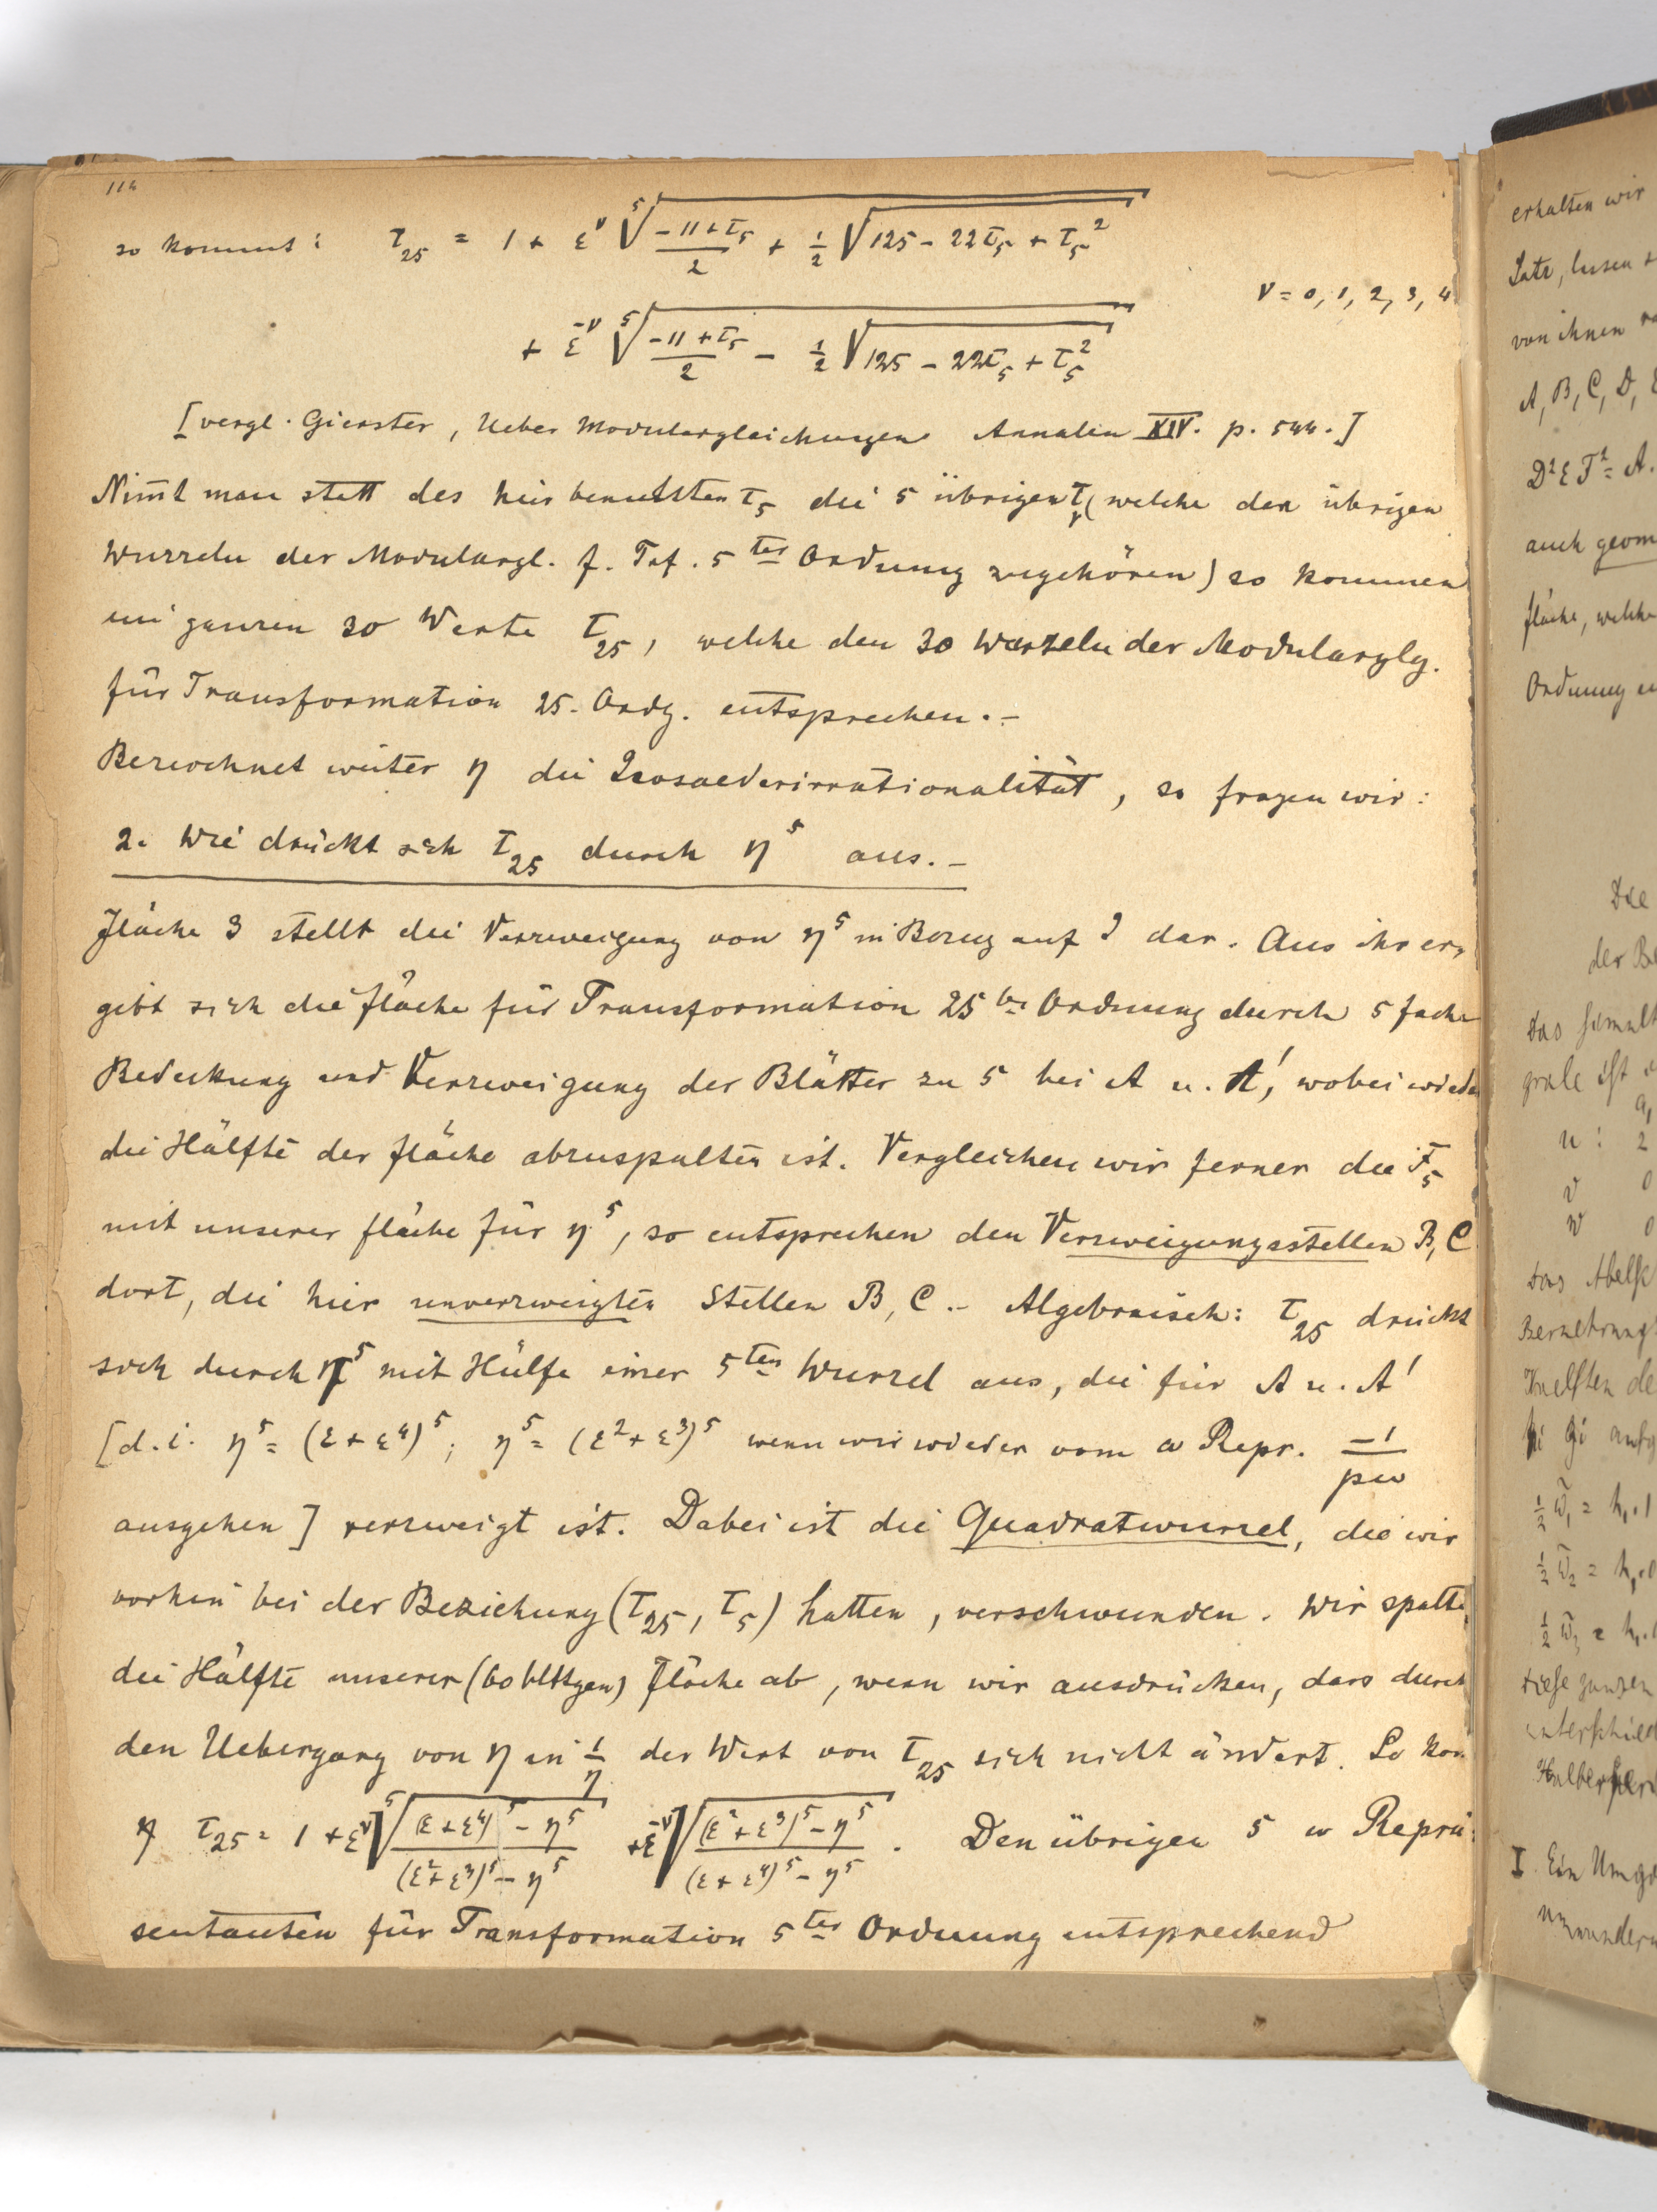 114
so kommt: τ_25 = 1 + ε^ν ⁵√( (-11+τ_5)/2 + 1/2 √(125 - 22τ_5 + τ_5^2) )
ν = 0, 1, 2, 3, 4
+ ε^-ν ⁵√( (-11+τ_5)/2 - 1/2 √(125 - 22τ_5 + τ_5^2) )
[vergl. Gierster, Ueber Modulargleichungen Annalen XIV. p. 544.]
Nim̄t man statt des hier benutzten τ_5 die 5 übrigen τ_5 (welche den übrigen
Wurzeln der Modulargl. f. Trf. 5ter Ordnung zugehören) so kommen
im ganzen 30 Werte τ_25, welche den 30 Wurzeln der Modularglg.
für Transformation 25. Ordg. entsprechen.-
Bezeichnet weiter η die Icosaederirrationalität, so fragen wir:
2. Wie drückt sich τ_25 durch η^5 aus.-
Fläche 3 stellt die Verzweigung von η^5 in Bezug auf J dar. Aus ihr er-
gibt sich die Fläche für Transformation 25ter Ordnung durch 5 fache
Bedeckung und Verzweigung der Blätter zu 5 bei A u. A', wobei wieder
die Hälfte der Fläche abzuspalten ist. Vergleichen wir ferner die F_5
mit unserer Fläche für η^5, so entsprechen den Verzweigungsstellen B, C
dort, die hier unverzweigten Stellen B, C.- Algebraisch: τ_25 drückt
sich durch η^5 mit Hülfe einer 5ten Wurzel aus, die für A u. A'
[d.i. η^5 = (ε+ε^4)^5; η^5 = (ε^2+ε^3)^5 wenn wir wieder vom ω Repr. -1/pω
ausgehen] verzweigt ist. Dabei ist die Quadratwurzel, die wir
vorhin bei der Beziehung (τ_25, τ_5) hatten, verschwunden. Wir spalten
die Hälfte unserer (60 blttgen) Fläche ab, wenn wir ausdrücken, dass durch
den Uebergang von η in 1/η der Wert von τ_25 sich nicht ändert. So kom
τ_25 = 1 + ε^ν ⁵√( ((ε+ε^4)^5 - η^5)/((ε^2+ε^3)^5 - η^5) ) + ε^-ν √( ((ε^2+ε^3)^5 - η^5)/((ε+ε^4)^5 - η^5) ). Den übrigen 5 ω Reprä-
sentanten für Transformation 5ter Ordnung entsprechend
erhalten wir
Satz, lassen
von ihnen
A, B, C, D,
auch geom
Fläche, welche
Ordnung
Die
der Be
Das
ist
u: 2
v 0
w 0
Das Abelsc
I. Ein Umga